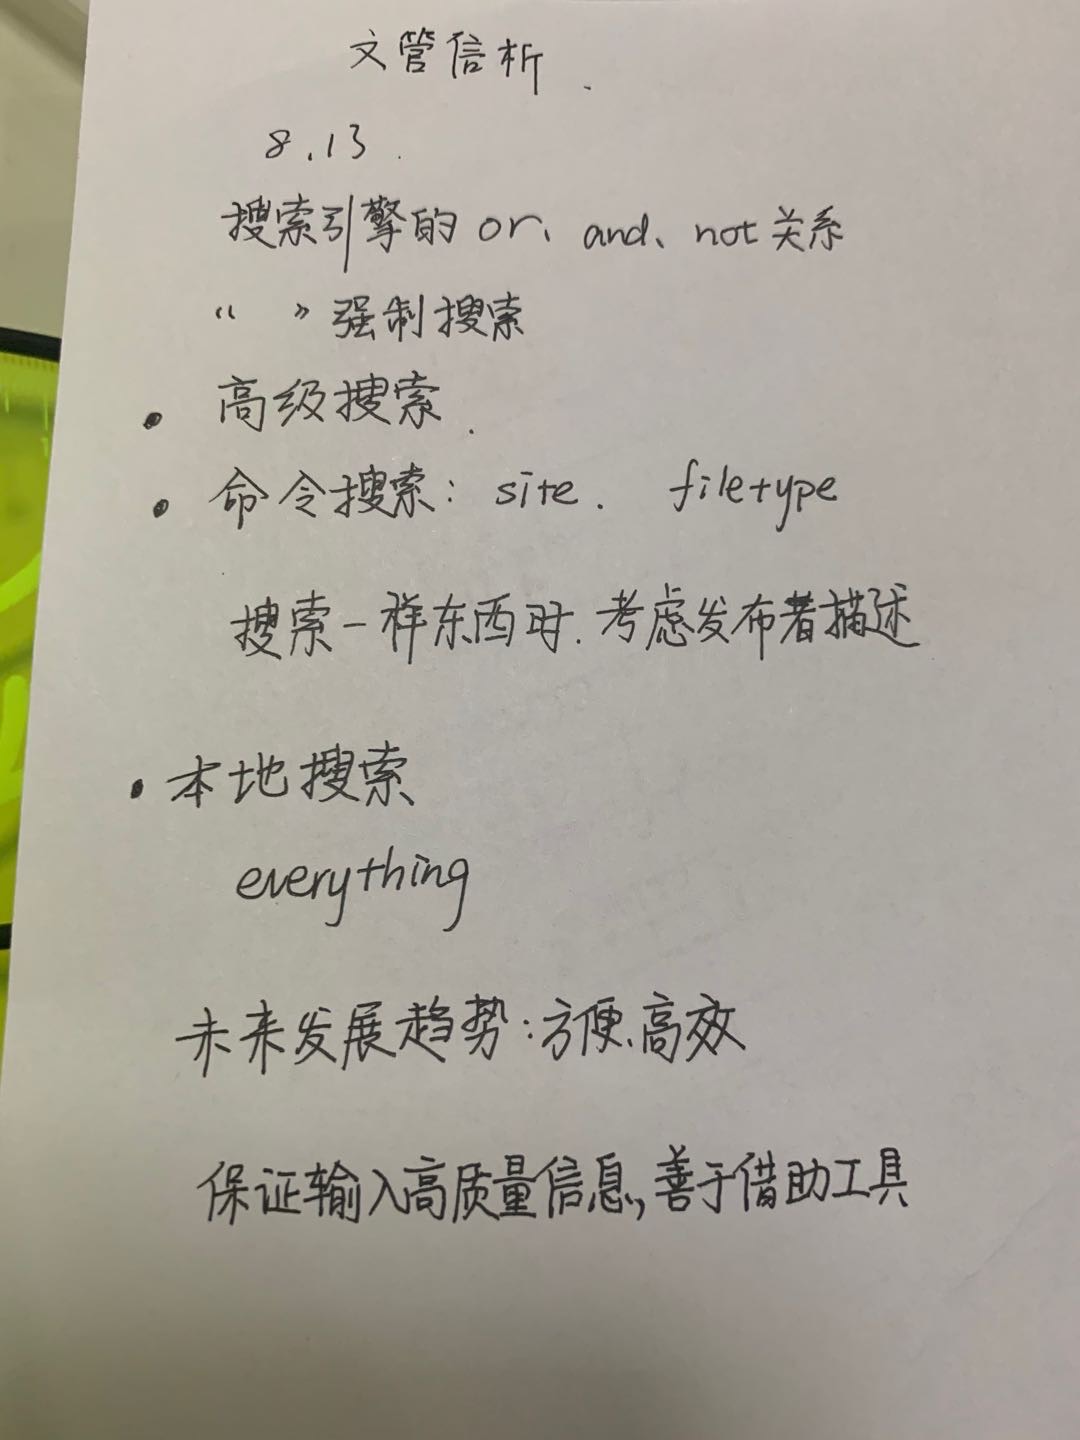 文管信析
8.13
搜索引擎的or、and、not关系
“ ”强制搜索
• 高级搜索
• 命令搜索：site. filetype
搜索一样东西时.考虑发布者描述
• 本地搜索
everything
未来发展趋势:方便、高效
保证输入高质量信息,善于借助工具